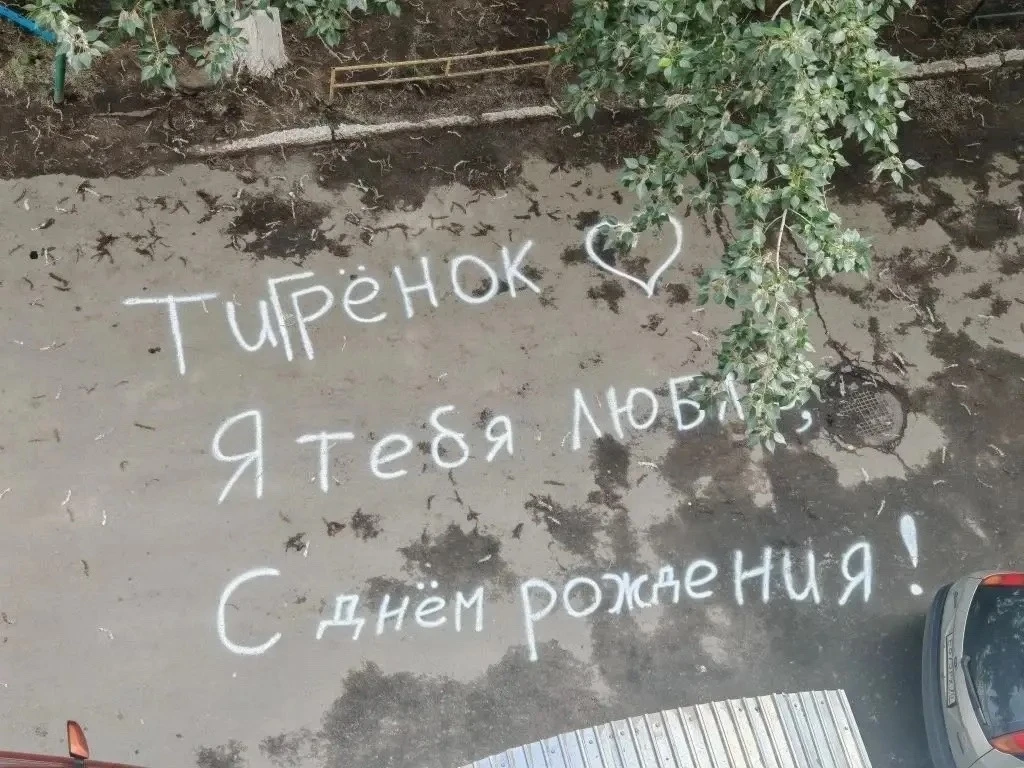 Тигрёнок ♡
Я тебя люблю,
С днём рождения!